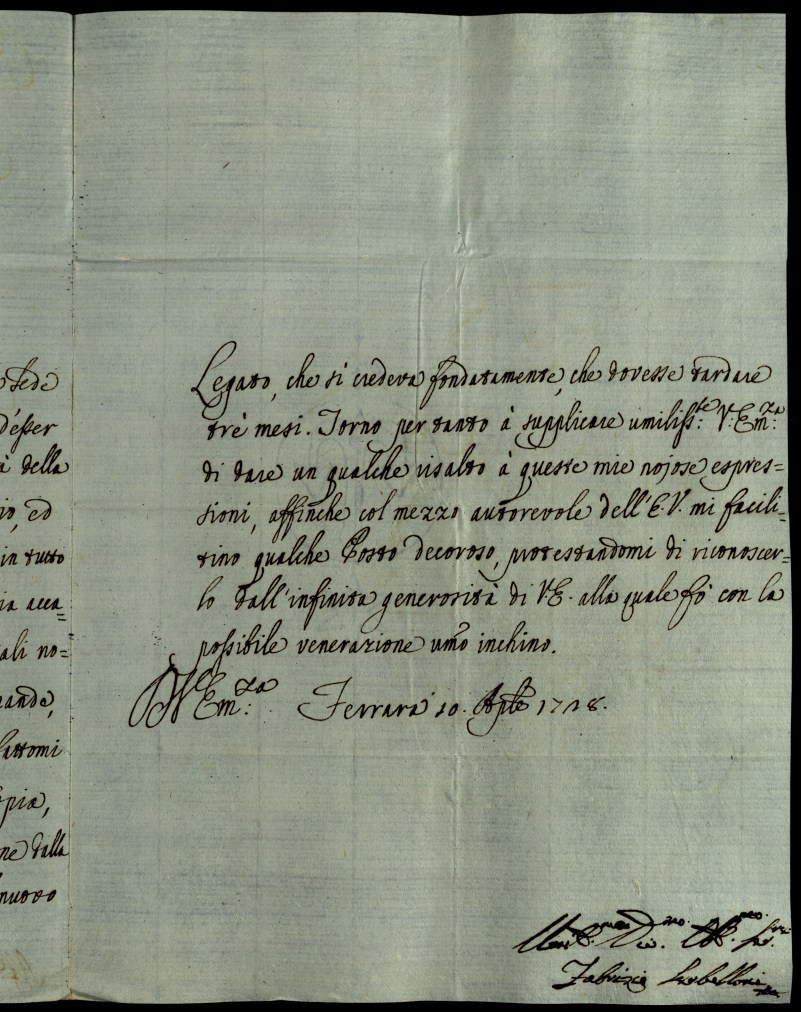 sede
d'esser
à della
io, ed
in tutto
ia acca=
ali no=
ande,
fattomi
opia,
ne dalla
nuovo
Legato, che si credeva fondatamente, che dovesse tardare
trè mesi. Torno per tanto à supplicare umiliss:te V: Em:za
di dare un qualche risalto à queste mie nojose espres=
sioni, affinche col mezzo autorevole dell'E.V. mi facili=
tino qualche Posto decoroso, protestandomi di riconoscer=
lo dall'infinita generosità di V.E. alla quale fò con la
possibile venerazione umo inchino.
Di V. Em:za Ferrara 10. Aple 1728.
Fabrizio Serbelloni